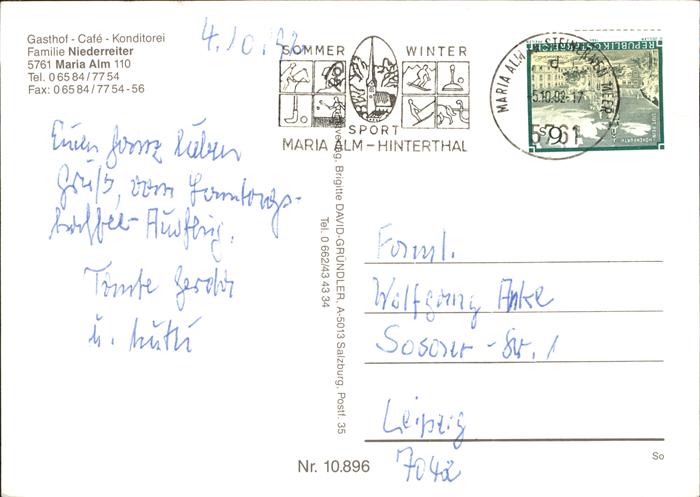 Gasthof - Café - Konditorei
Familie Niederreiter
5761 Maria Alm 110
Tel. 0 65 84 / 77 54
Fax: 0 65 84 / 77 54 - 56
4.10.92
SOMMER WINTER
SPORT
MARIA ALM - HINTERTHAL
MARIA ALM AM STEINERNEN MEER
-5.10.92-17
5761
REPUBLIK
6
Euch ganz lieben
Gruß, vom Sonntags-
Ausflug.
Tante Gerda
u. Mutti
Brigitte DAVID-GRÜNDLER, A-5013 Salzburg, Postf. 35
Tel. 0 662/43 43 34
Faml.
Wolfgang Anke
Str. 1
Leipzig
7042
Nr. 10.896
So